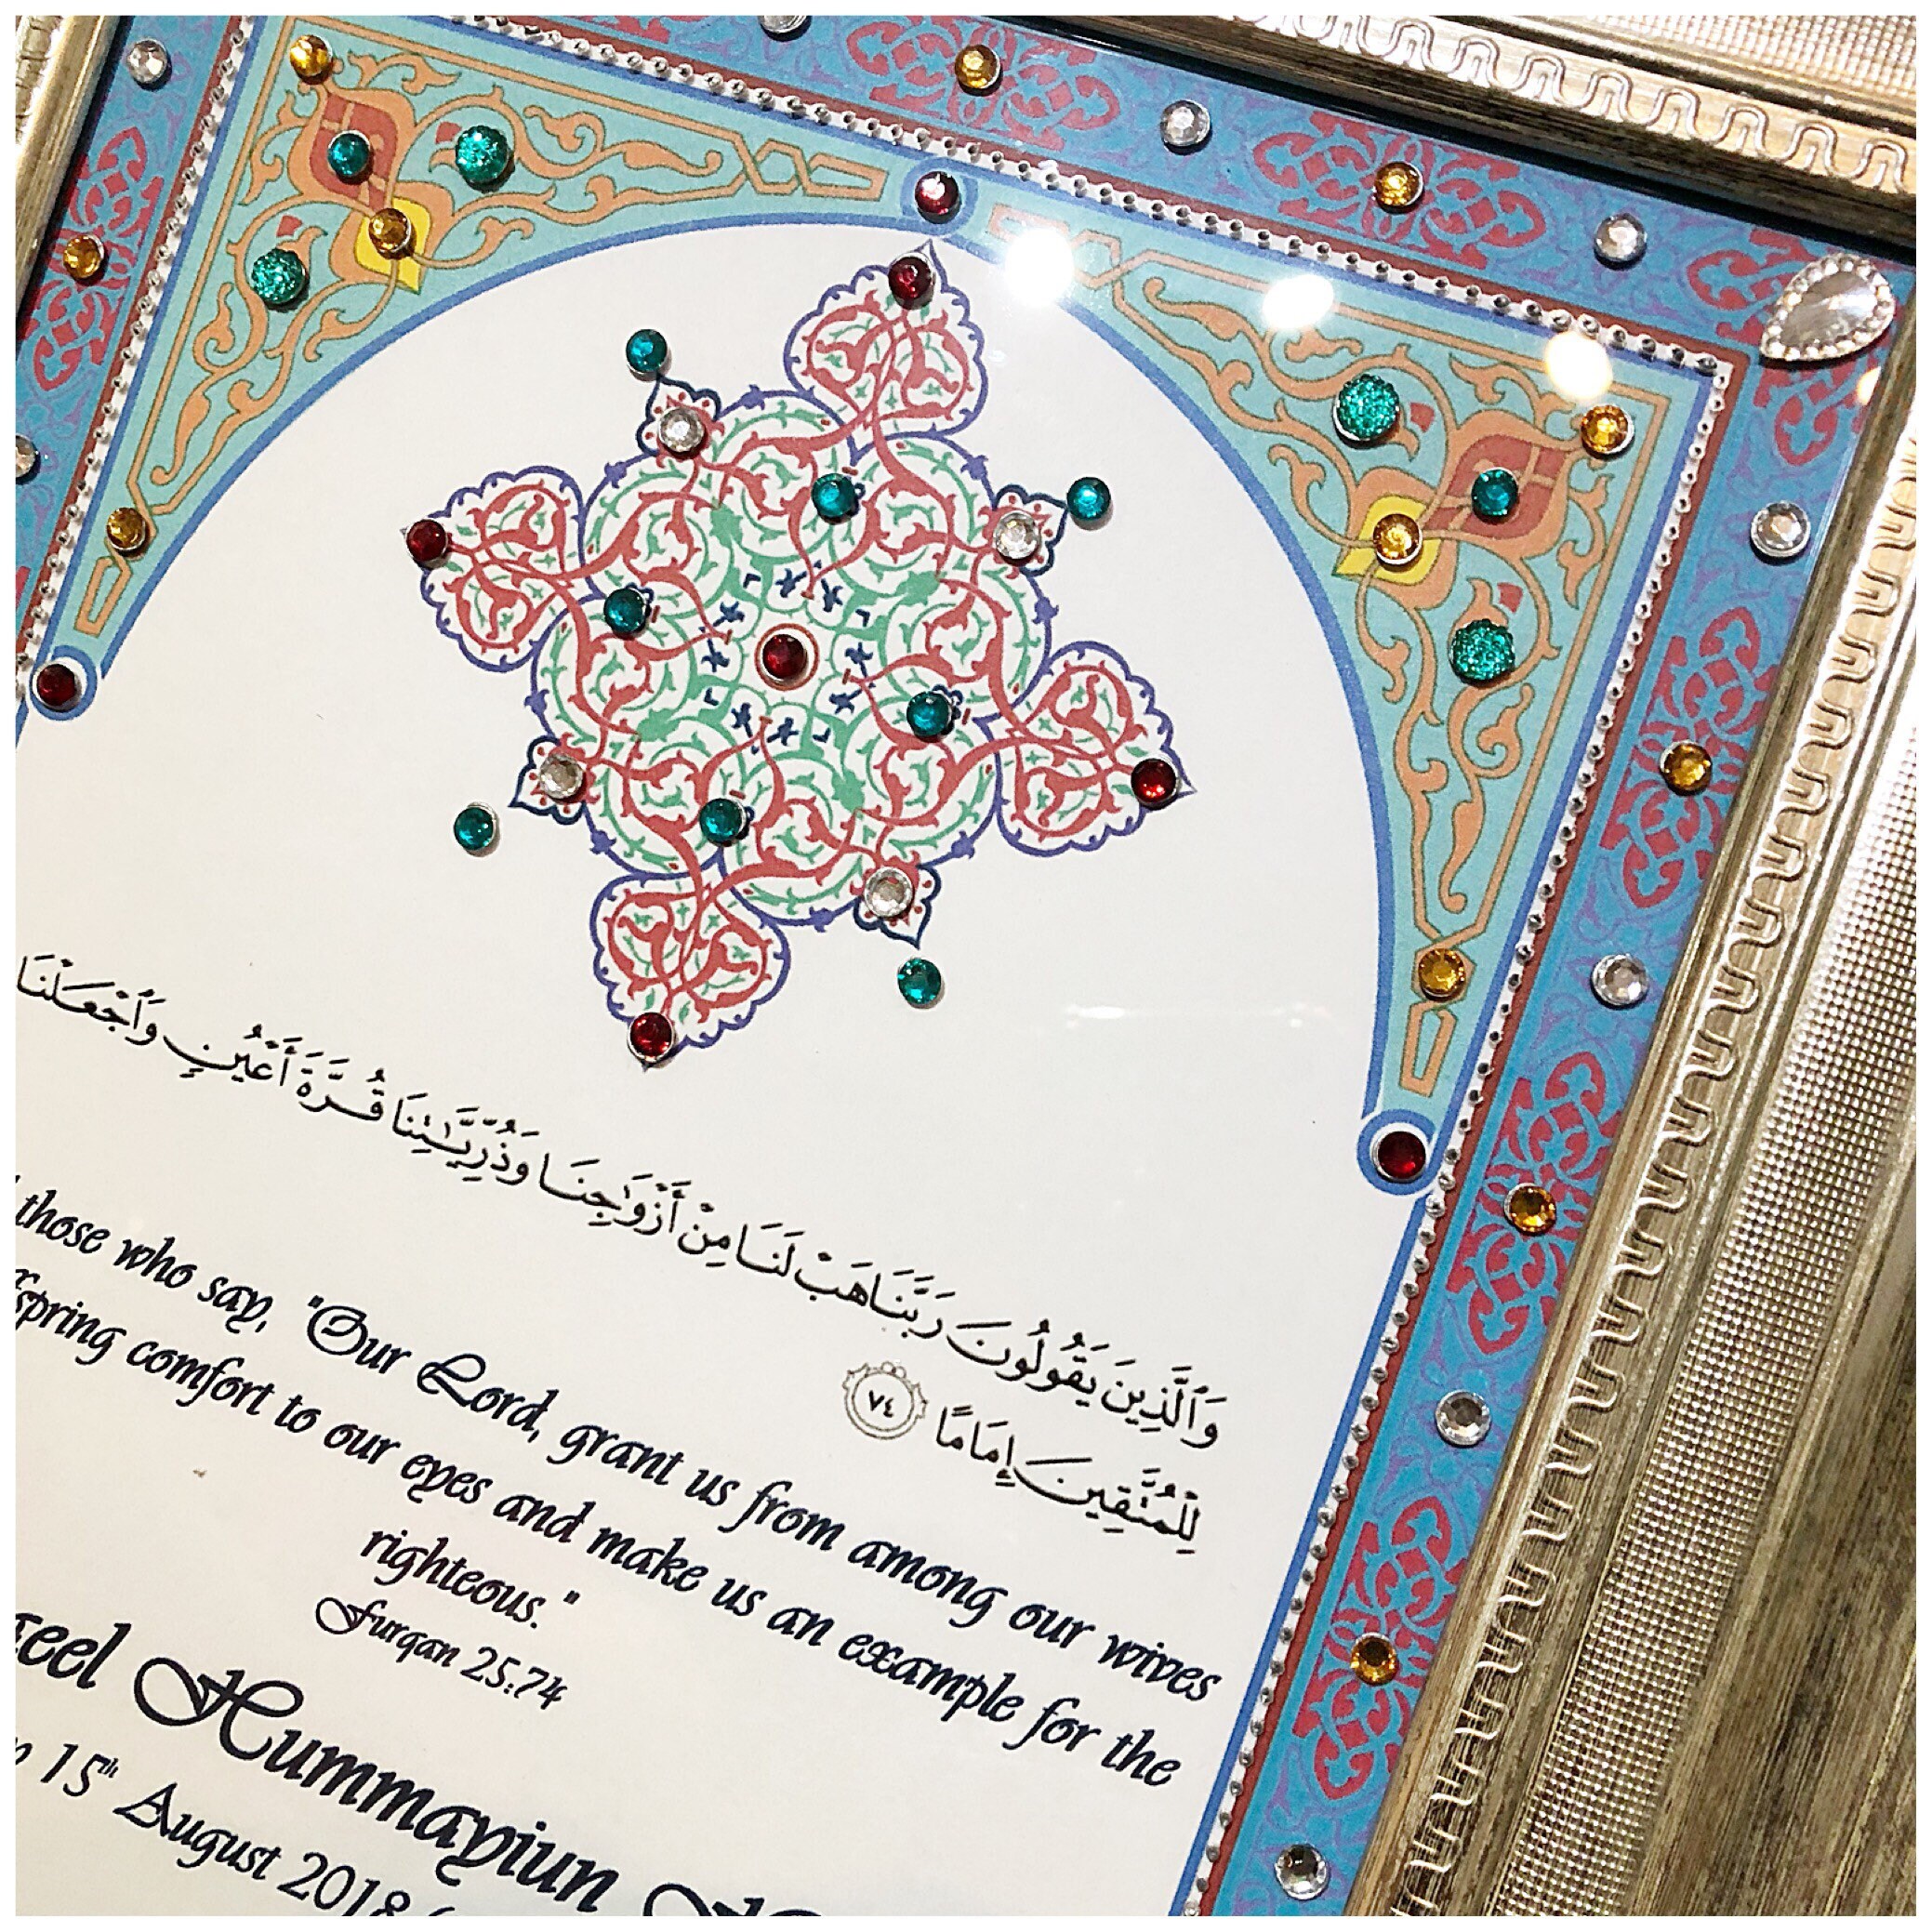 وَٱلَّذِينَ يَقُولُونَ رَبَّنَا هَبْ لَنَا مِنْ أَزْوَٰجِنَا وَذُرِّيَّـٰتِنَا قُرَّةَ أَعْيُنٍ وَٱجْعَلْنَا
لِلْمُتَّقِينَ إِمَامًا ٧٤
those who say, "Our Lord, grant us from among our wives
spring comfort to our eyes and make us an example for the
righteous."
Furqan 25:74
Hummayiun
15th August 2018